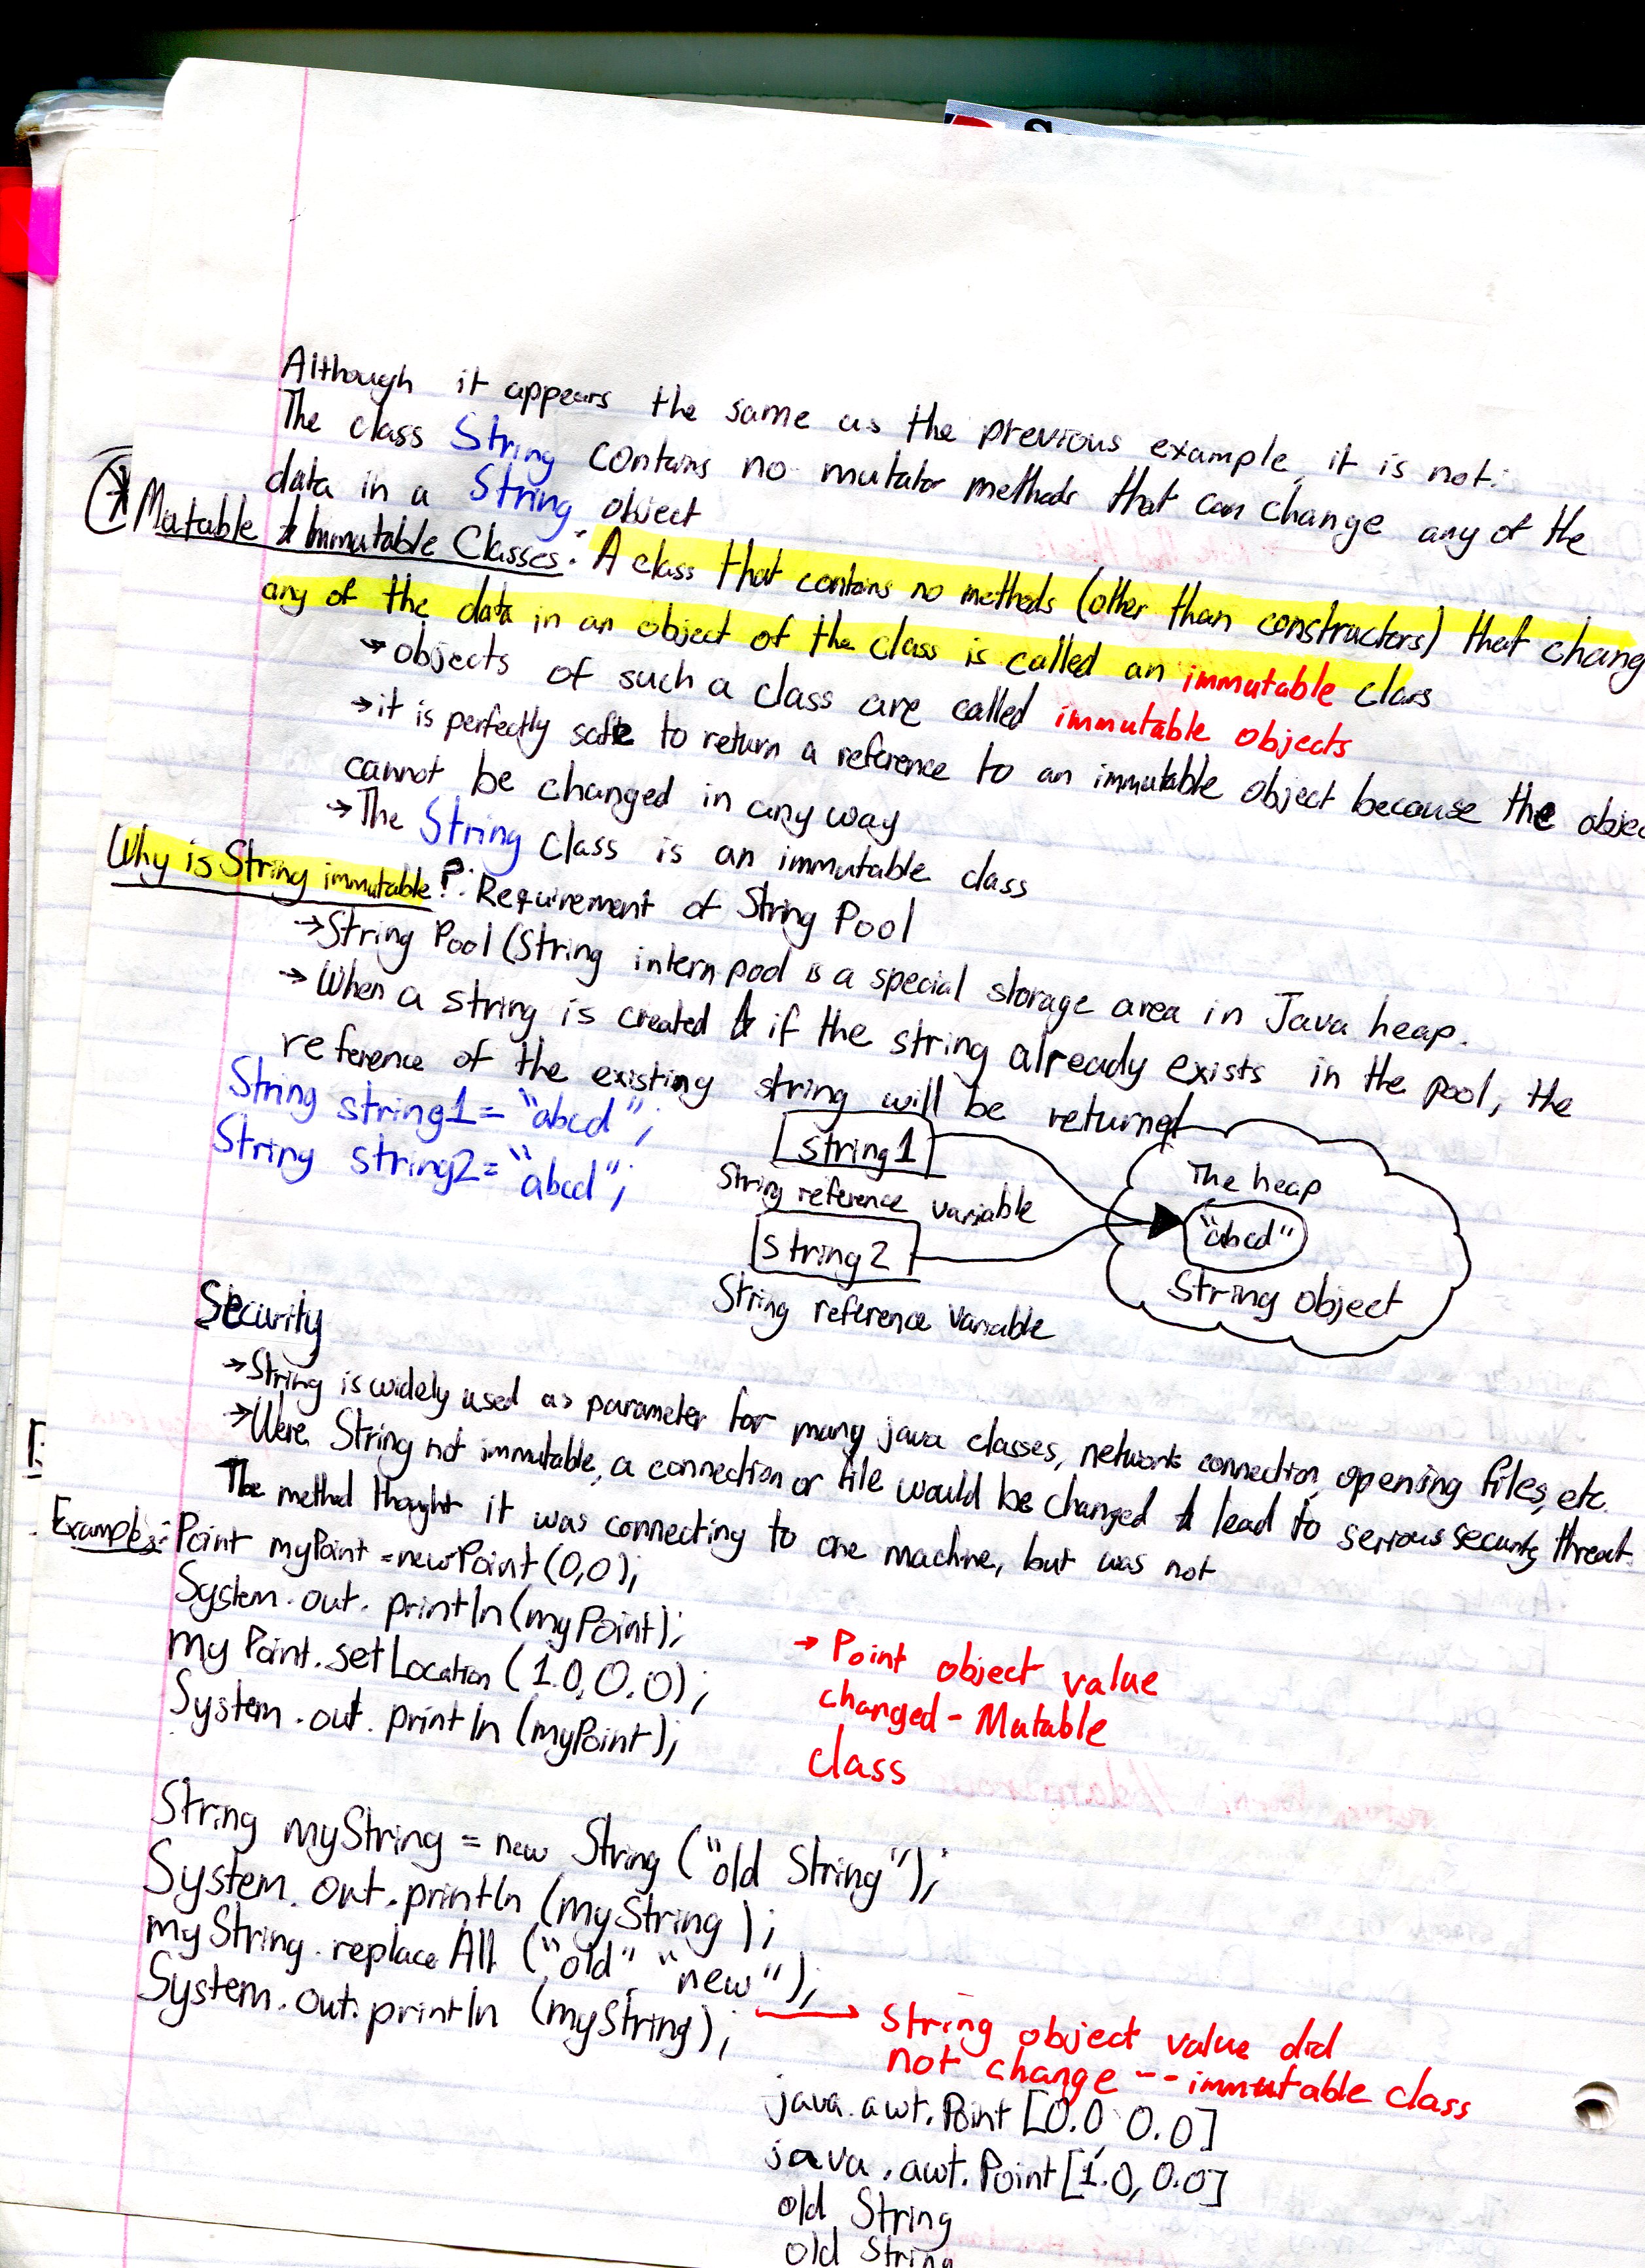 Although it appears the same as the previous example, it is not.
The class String contains no mutator methods that can change any of the
data in a String object
Mutable & Immutable Classes: A class that contains no methods (other than constructors) that chang
any of the data in an object of the class is called an immutable class
→ objects of such a class are called immutable objects
→ it is perfectly safe to return a reference to an immutable object because the objec
cannot be changed in any way
→ The String class is an immutable class
Why is String immutable?: Requirement of String Pool
→ String Pool (String intern pool is a special storage area in Java heap.
→ When a string is created & if the string already exists in the pool, the
reference of the existing string will be returned
String string1 = "abcd";
String string2 = "abcd";
string1
String reference variable
string2
String reference variable
The heap
"abcd"
String object
Security
→ String is widely used as parameter for many java classes, network connection, opening files, etc.
→ Were String not immutable, a connection or file would be changed & lead to serious security threat.
The method thought it was connecting to one machine, but was not
Examples: Point myPoint = new Point (0,0);
System.out.println(myPoint);
my Point.setLocation (1.0, 0.0);
System.out.println (myPoint);
→ Point object value
changed - Mutable
class
String myString = new String ("old String");
System.out.println (myString);
myString.replace All ("old" "new");
System.out.println (myString);
→ String object value did
not change -- immutable class
java.awt.Point [0.0 0.0]
java.awt.Point [1.0, 0.0]
old String
old String